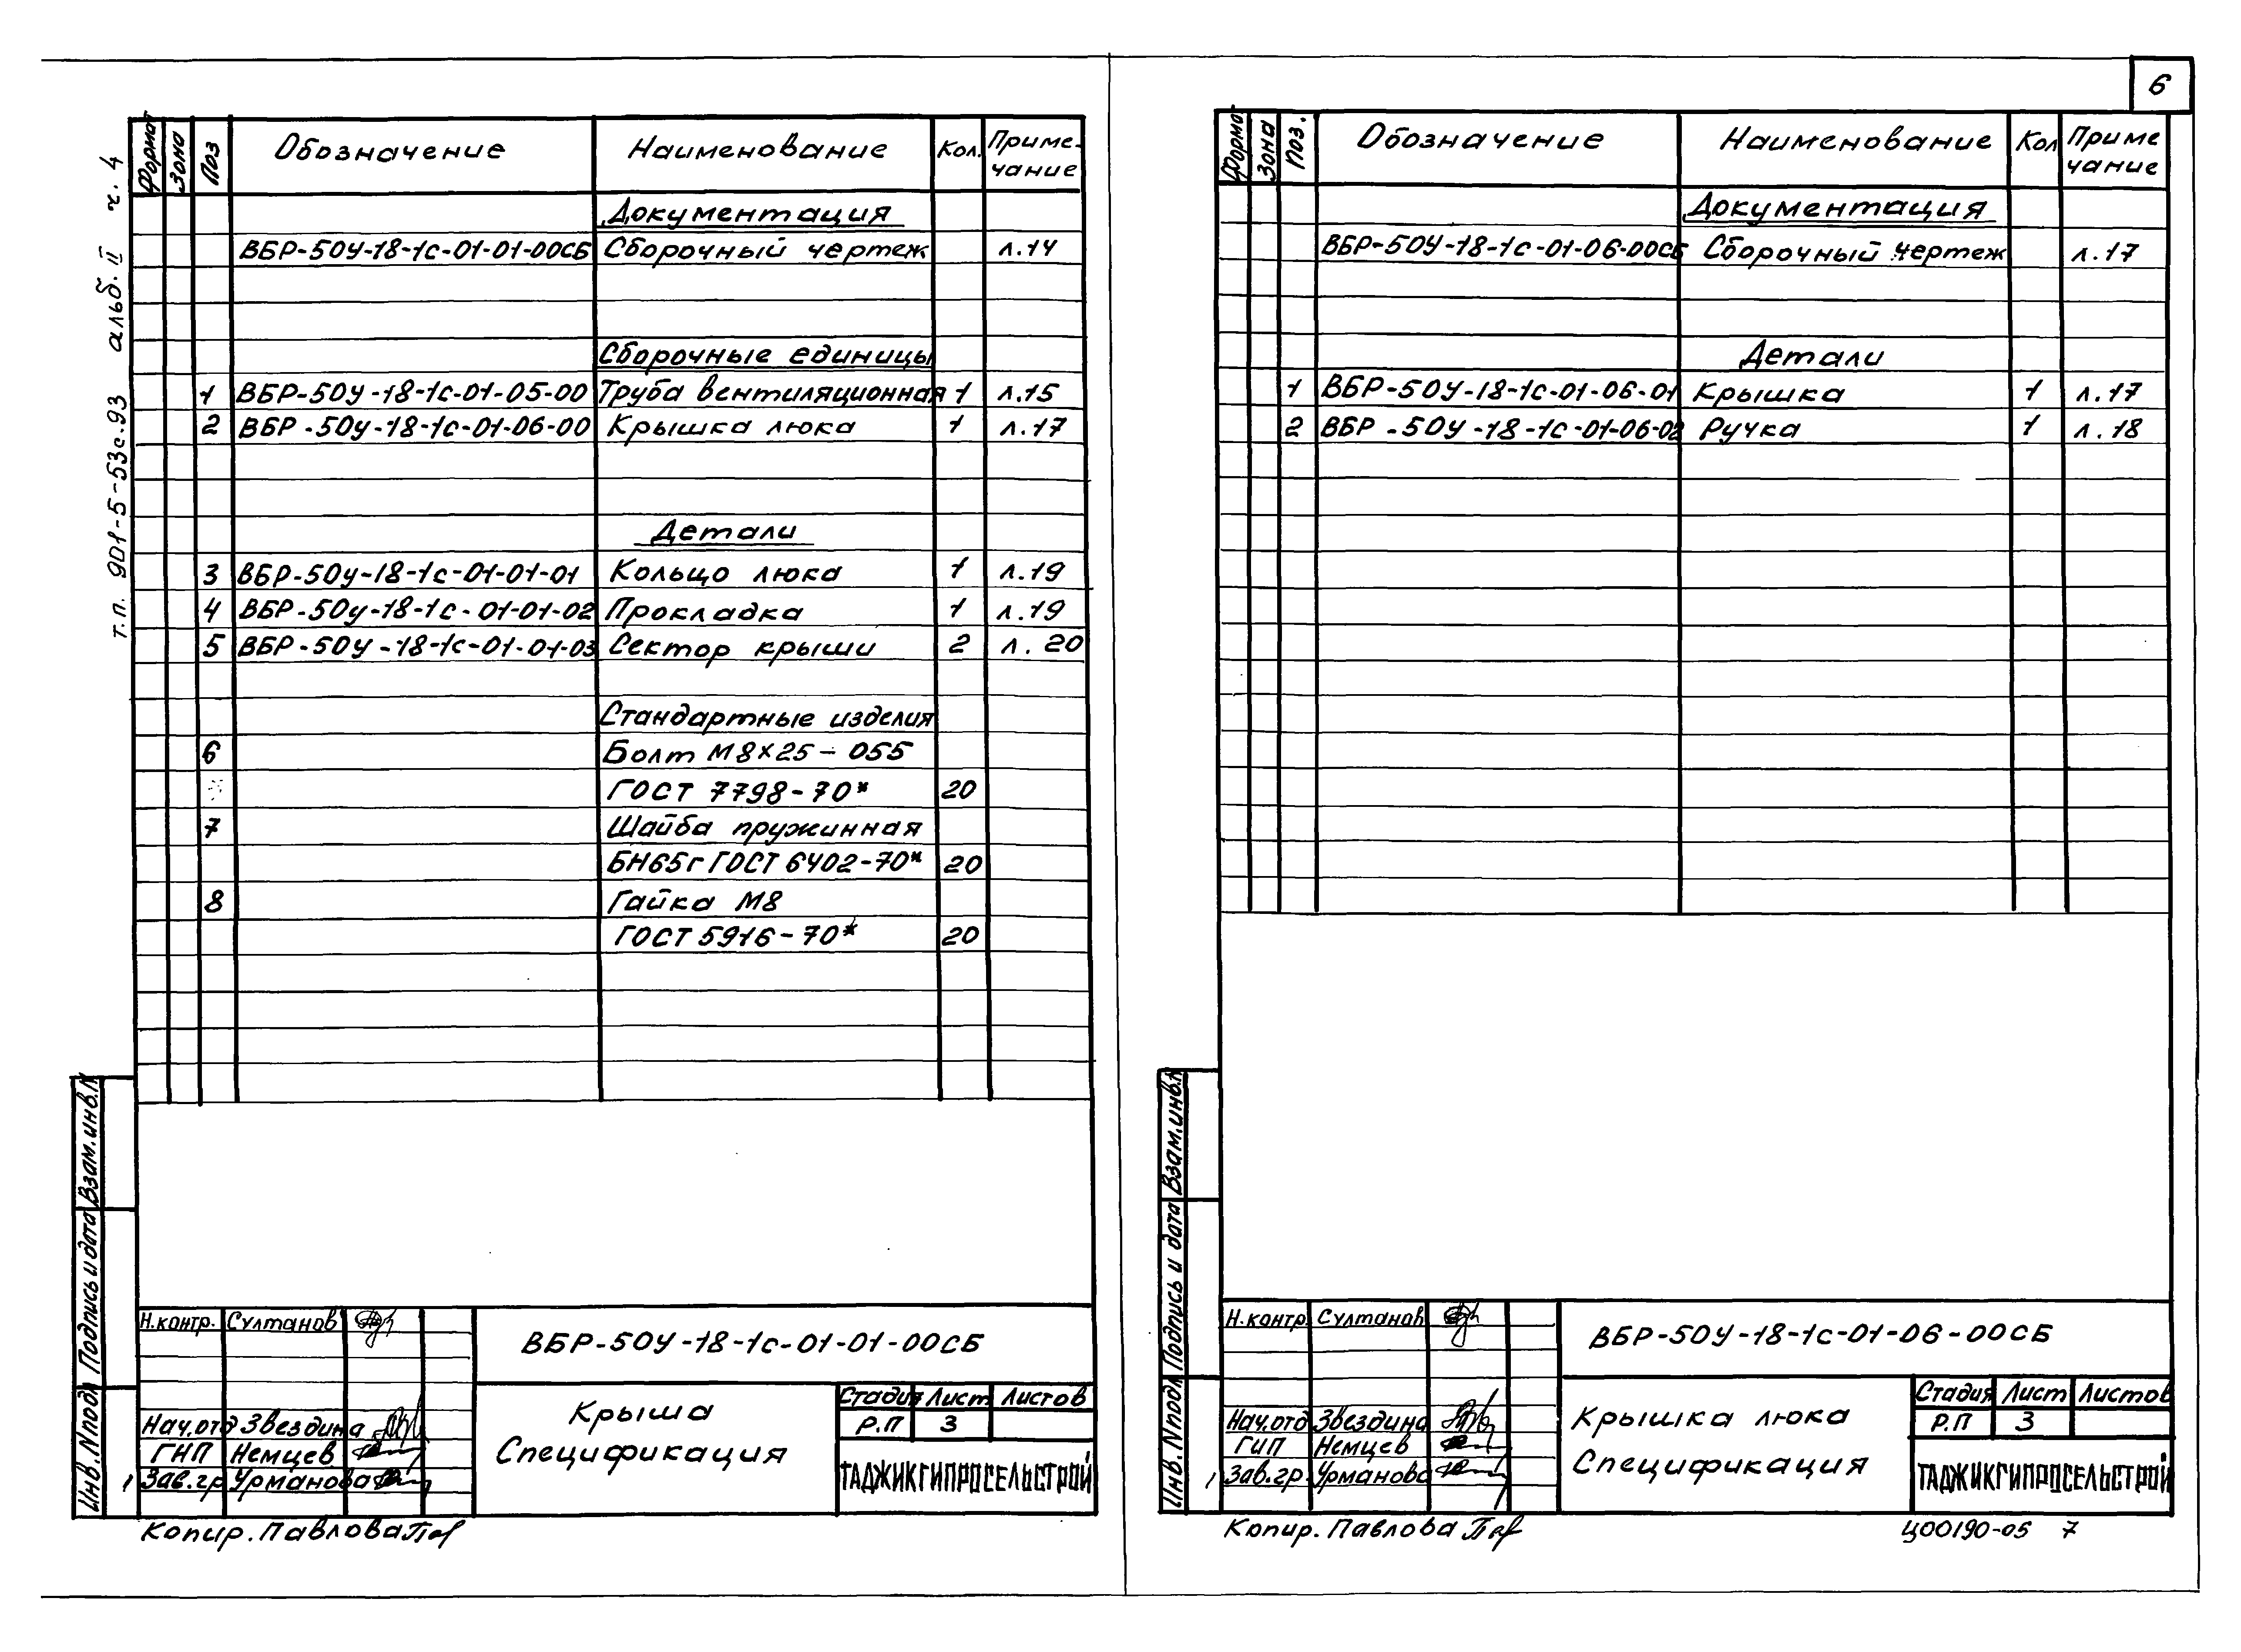 6
т.п. 901-5-53с.93 альб. II ч. 4
Формат Зона Поз Обозначение Наименование Кол. Приме-
чание
Документация
ВБР-50У-18-1с-01-01-00СБ Сборочный чертеж л.14
Сборочные единицы
1 ВБР-50У-18-1с-01-05-00 Труба вентиляционная 1 л.15
2 ВБР-50У-18-1с-01-06-00 Крышка люка 1 л.17
Детали
3 ВБР-50У-18-1с-01-01-01 Кольцо люка 1 л.19
4 ВБР-50У-18-1с-01-01-02 Прокладка 1 л.19
5 ВБР-50У-18-1с-01-01-03 Сектор крыши 2 л.20
Стандартные изделия
6 Болт М8х25-055
ГОСТ 7798-70* 20
7 Шайба пружинная
БН65г ГОСТ 6402-70* 20
8 Гайка М8
ГОСТ 5916-70* 20
Взам.инв.N
Подпись и дата
Инв.Nподл
Н.контр. Султанов
ВБР-50У-18-1с-01-01-00СБ
Крыша
Спецификация
Стадия Лист Листов
Р.П 3
Нач.отд Звездина
ГИП Немцев
1 Зав.гр Урманова
ТАДЖИКГИПРОСЕЛЬСТРОЙ
Копир. Павлова
Формат Зона Поз. Обозначение Наименование Кол Приме
чание
Документация
ВБР-50У-18-1с-01-06-00СБ Сборочный чертеж л.17
Детали
1 ВБР-50У-18-1с-01-06-01 Крышка 1 л.17
2 ВБР-50У-18-1с-01-06-02 Ручка 1 л.18
Взам.инв.N
Подпись и дата
Инв.Nподл
Н.контр. Султанов
ВБР-50У-18-1с-01-06-00СБ
Крышка люка
Спецификация
Стадия Лист Листов
Р.П 3
Нач.отд Звездина
ГИП Немцев
1 Зав.гр. Урманова
ТАДЖИКГИПРОСЕЛЬСТРОЙ
Копир. Павлова
Ц00190-05 7